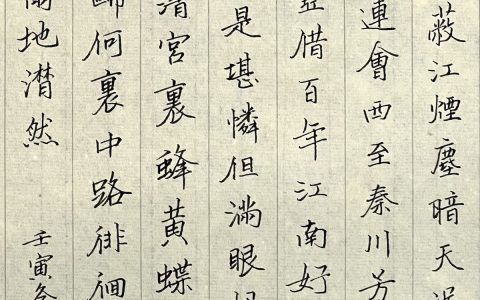 蔽江煙塵暗天
連會西至秦川芳
借百年江南好
是堪憐但滿眼
清宮裏蜂黃蝶
歸何裏中路徘徊
地潸然
壬寅冬